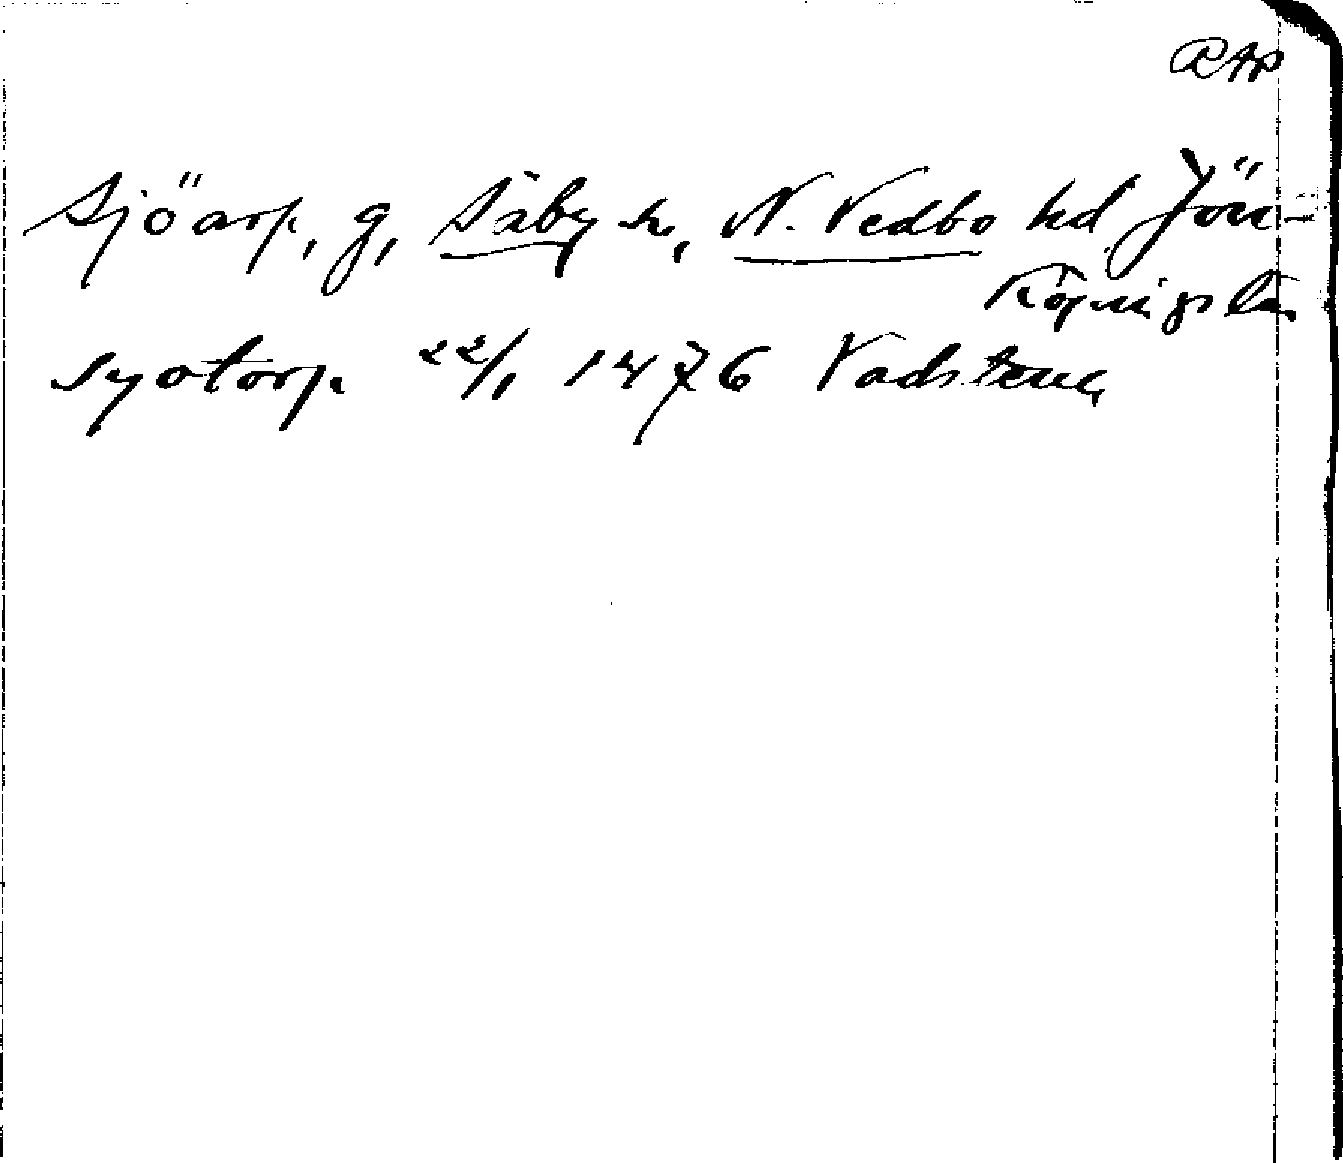 RAP
Sjöarp, g, Säby sn, N. Vedbo hd Jön-
köpings län
syotorp 22/1 1476 Vadstena